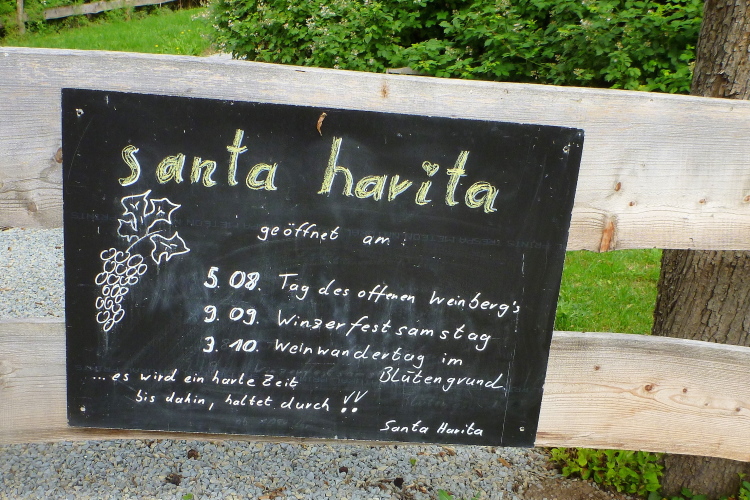 santa harita
geöffnet am:
5.08. Tag des offenen Weinberg's
9.09. Winzerfestsamstag
3.10. Weinwandertag im
Blütengrund
... es wird ein harte Zeit
bis dahin, haltet durch !!
Santa Harita